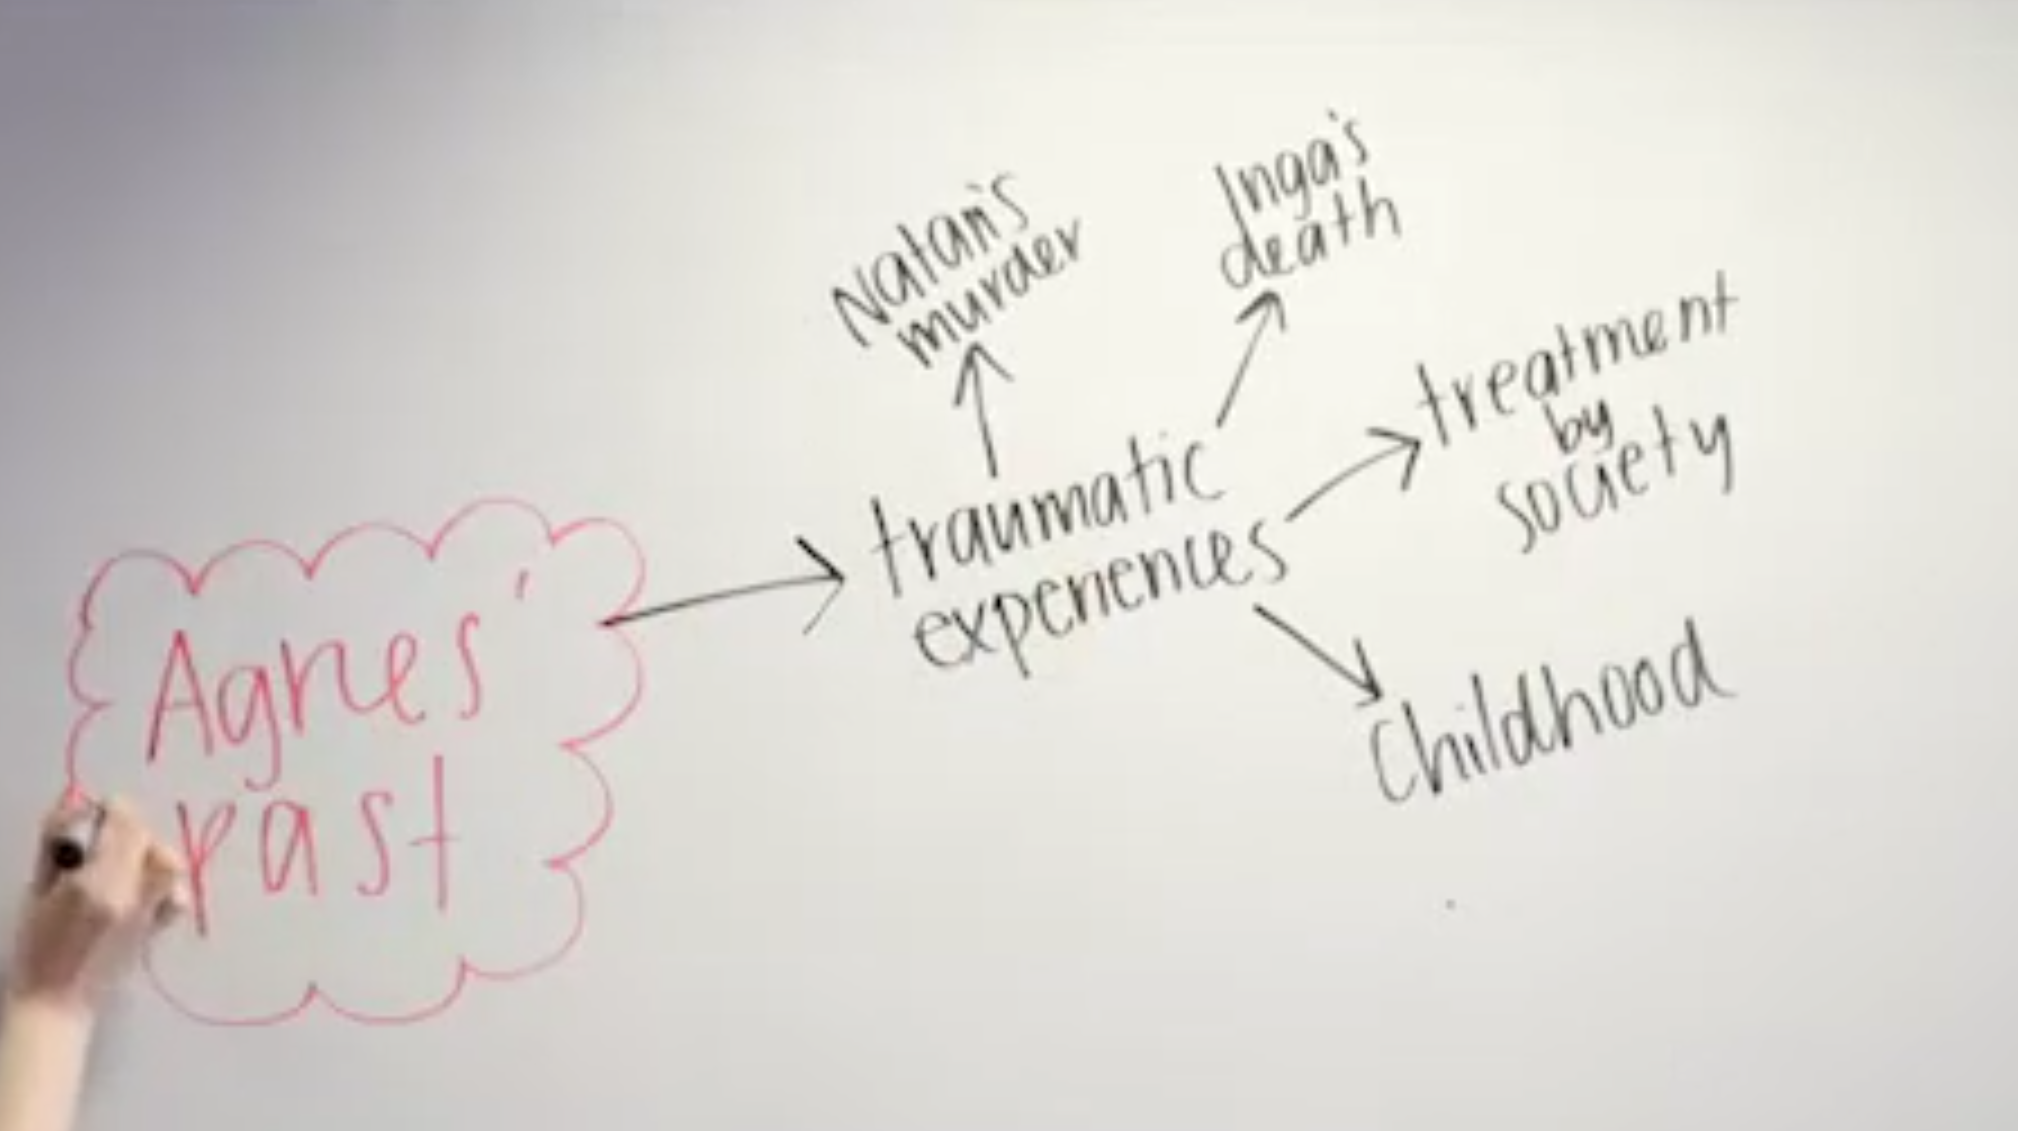 Agnes'
past
traumatic
experiences
Natan's
murder
Inga's
death
treatment
by
society
Childhood